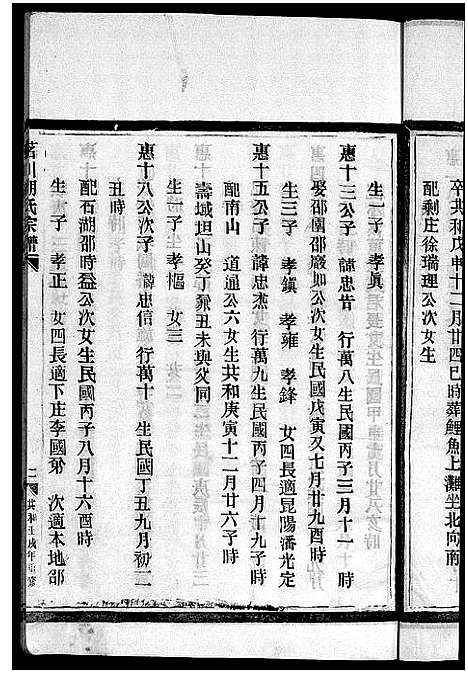 卒共和戊申十二月廿四巳時葬鯉魚上灘坐北向南
配剩庄徐瑞理公次女生
生一子 孝眞
惠十三公子 諱忠肯 行萬八生民國丙子三月十一時
娶邵圍邵巖如公次女生民國戊寅又七月廿九酉時
生三子 孝鎮 孝雍 孝鋒 女四長適昆陽潘光定
惠十五公子 諱忠杰 行萬九生民國丙子四月十九子時
配南山 道通公六女生共和庚寅十一月廿六子時
壽域坦山癸丁兼丑未與父同
生一子 孝樞 女三
惠十八公次子 諱忠信 行萬十生民國丁丑九月初二
丑時
配石湖邵時益公次女生民國丙子八月十六酉時
生一子 孝正 女四長適下庄李國 次適本地邵
茗川胡氏宗譜
共和壬戌年重修